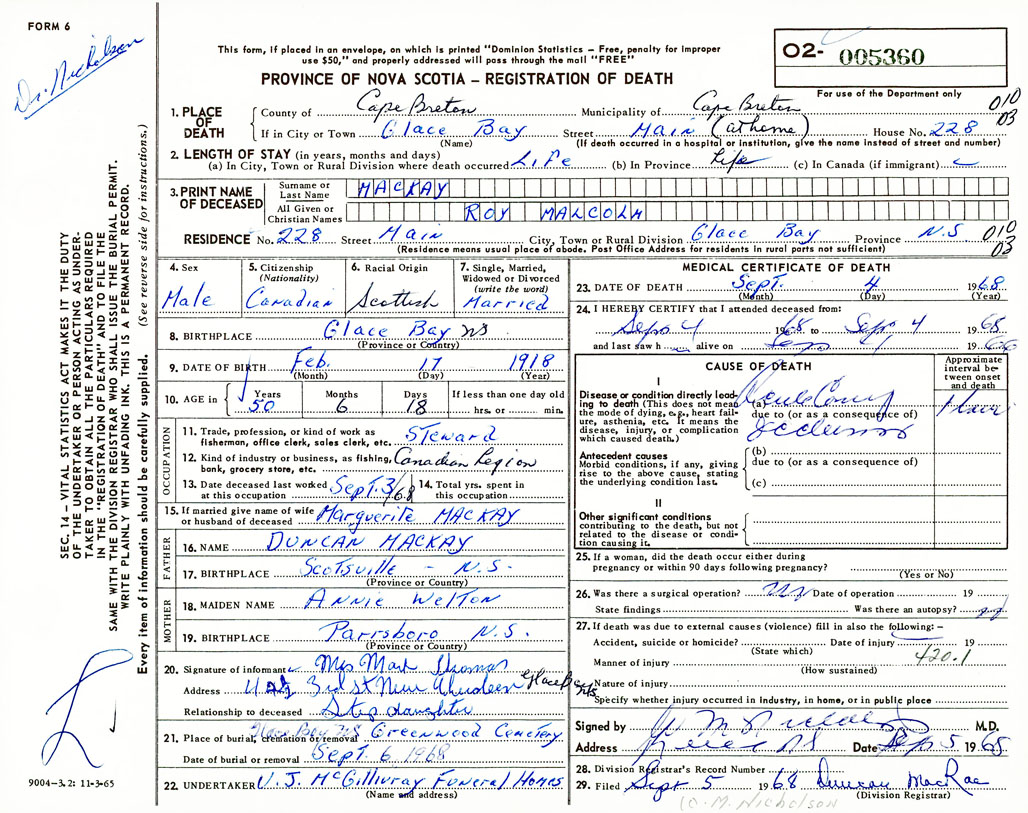 FORM 6
Dr. Nicholson
This form, if placed in an envelope, on which is printed "Dominion Statistics – Free, penalty for improper
use $50," and properly addressed will pass through the mail "FREE"
PROVINCE OF NOVA SCOTIA – REGISTRATION OF DEATH
O2- 005360
For use of the Department only
010
03
1. PLACE OF DEATH
County of Cape Breton Municipality of Cape Breton
If in City or Town Glace Bay Street Main (at home) House No. 228
(Name) (If death occurred in a hospital or institution, give the name instead of street and number)
2. LENGTH OF STAY (in years, months and days)
(a) In City, Town or Rural Division where death occurred Life (b) In Province Life (c) In Canada (if immigrant)
3. PRINT NAME OF DECEASED
Surname or Last Name MACKAY
All Given or Christian Names ROY MALCOLM
RESIDENCE No. 228 Street Main City, Town or Rural Division Glace Bay Province N.S 010
03
(Residence means usual place of abode. Post Office Address for residents in rural parts not sufficient)
4. Sex
Male
5. Citizenship
(Nationality)
Canadian
6. Racial Origin
Scottish
7. Single, Married,
Widowed or Divorced
(write the word)
Married
8. BIRTHPLACE Glace Bay NS
(Province or Country)
9. DATE OF BIRTH Feb. 17 1918
(Month) (Day) (Year)
10. AGE in
Years Months Days If less than one day old
50 6 18 hrs. or min.
OCCUPATION
11. Trade, profession, or kind of work as
fisherman, office clerk, sales clerk, etc. Steward
12. Kind of industry or business, as fishing,
bank, grocery store, etc. Canadian Legion
13. Date deceased last worked
at this occupation Sept. 3/68
14. Total yrs. spent in
this occupation
15. If married give name of wife
or husband of deceased Marguerite MACKAY
FATHER
16. NAME DUNCAN MACKAY
17. BIRTHPLACE Scotsville – N.S.
(Province or Country)
MOTHER
18. MAIDEN NAME Annie Welton
19. BIRTHPLACE Parrsboro N.S.
(Province or Country)
20. Signature of informant Mrs
Address 3rd St New Aberdeen Glace Bay NS
Relationship to deceased Step daughter
21. Place of burial, cremation or removal Glace Bay NS Greenwood Cemetery
Date of burial or removal Sept. 6 1968
22. UNDERTAKER V. J. McGillivray Funeral Homes
(Name and address)
MEDICAL CERTIFICATE OF DEATH
23. DATE OF DEATH Sept. 4 1968
(Month) (Day) (Year)
24. I HEREBY CERTIFY that I attended deceased from:
Sept 4 1968 to Sept 4 1968
and last saw h alive on 19
CAUSE OF DEATH
Approximate
interval be-
tween onset
and death
I
Disease or condition directly lead-
ing to death (This does not mean
the mode of dying, e.g., heart fail-
ure, asthenia, etc. It means the
disease, injury, or complication
which caused death.)
(a)
due to (or as a consequence of)
Antecedent causes
Morbid conditions, if any, giving
rise to the above cause, stating
the underlying condition last.
(b)
due to (or as a consequence of)
(c)
II
Other significant conditions
contributing to the death, but not
related to the disease or condi-
tion causing it.
25. If a woman, did the death occur either during
pregnancy or within 90 days following pregnancy?
(Yes or No)
26. Was there a surgical operation? Date of operation 19
State findings Was there an autopsy?
27. If death was due to external causes (violence) fill in also the following: –
Accident, suicide or homicide? Date of injury 19
(State which)
420.1
Manner of injury
(How sustained)
Nature of injury
Specify whether injury occurred in Industry, in home, or in public place
Signed by M.D.
Address Date Sep 5 1968
28. Division Registrar's Record Number
29. Filed Sept 5 1968 Duncan MacRae
(Division Registrar)
M. Nicholson
SEC. 14 – VITAL STATISTICS ACT MAKES IT THE DUTY
OF THE UNDERTAKER OR PERSON ACTING AS UNDER-
TAKER TO OBTAIN ALL THE PARTICULARS REQUIRED
IN THE "REGISTRATION OF DEATH" AND TO FILE THE
SAME WITH THE DIVISION REGISTRAR WHO SHALL ISSUE THE BURIAL PERMIT.
WRITE PLAINLY WITH UNFADING INK. THIS IS A PERMANENT RECORD.
Every item of information should be carefully supplied. (See reverse side for instructions.)
9004–3.2: 11-3-65